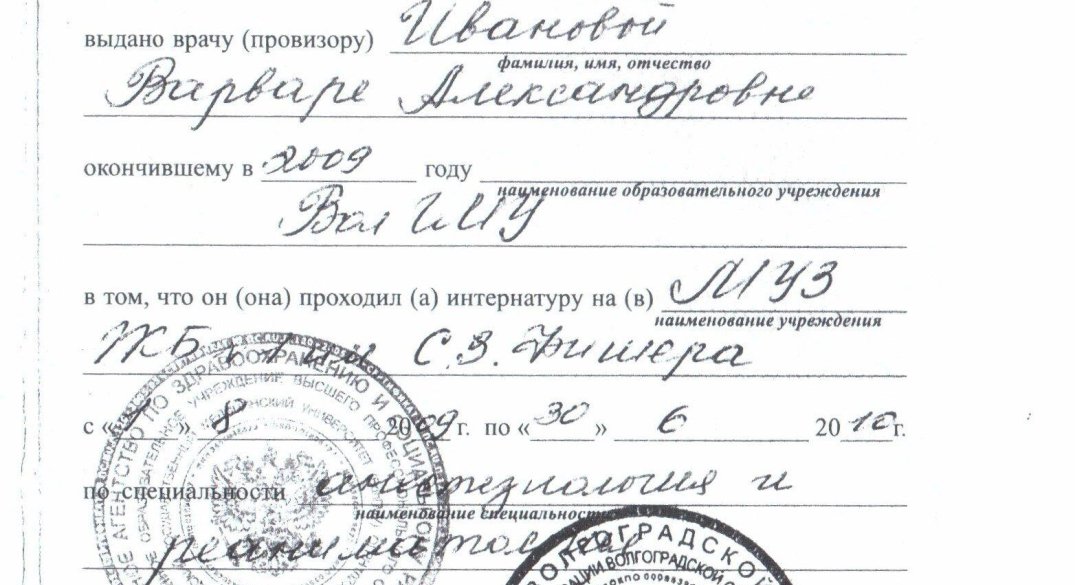 выдано врачу (провизору) Ивановой
фамилия, имя, отчество
Варваре Александровне
окончившему в 2009 году
наименование образовательного учреждения
Вол ГМУ
в том, что он (она) проходил (а) интернатуру на (в) МУЗ
наименование учреждения
С.З. Фишера
с «1» 8 2009 г. по «30» 6 2010 г.
по специальности анестезиология и
наименование специальности
реаниматология
АГЕНТСТВО ПО ЗДРАВООХРАНЕНИЮ И СОЦИАЛЬНОМУ
ОБРАЗОВАТЕЛЬНОЕ УЧРЕЖДЕНИЕ ВЫСШЕГО
УНИВЕРСИТЕТ
ВОЛГОГРАДСКОЙ